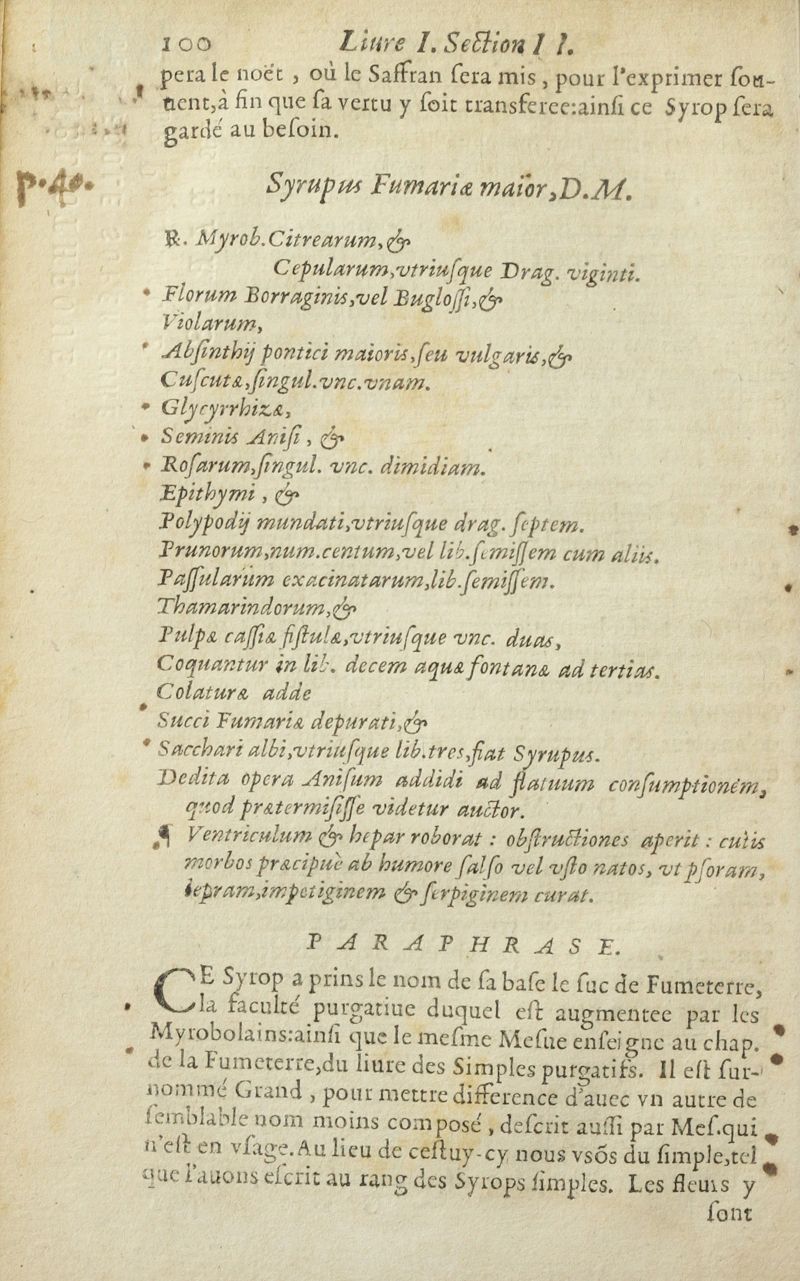 100 Liure I. Section I I.
pera le noët , où le Saffran sera mis , pour l'exprimer sou-
uent,à fin que sa vertu y soit transferee:ainsi ce Syrop sera
gardé au besoin.
p.40.
Syrupus Fumariæ maior,D.M.
℞. Myrob.Citrearum,&
Cepularum,vtriusque Drag. viginti.
Florum Borraginis,vel Buglossi,&
Violarum,
Absinthij pontici maioris,seu vulgaris,&
Cuscutæ,singul.vnc.vnam.
Glycyrrhizæ,
Seminis Anisi , &
Rosarum,singul. vnc. dimidiam.
Epithymi , &
Polypodij mundati,vtriusque drag. septem.
Prunorum,num.centum,vel lib.semissem cum aliis.
Passularum exacinatarum,lib.semissem.
Thamarindorum,&
Pulpæ cassiæ fistulæ,vtriusque vnc. duas,
Coquantur in lib. decem aquæ fontanæ ad tertias.
Colaturæ adde
Succi Fumariæ depurati,&
Sacchari albi,vtriusque lib.tres,fiat Syrupus.
Dedita opera Anisum addidi ad flatuum consumptionem,
quod prætermisisse videtur auctor.
¶ Ventriculum & hepar roborat : obstructiones aperit : cutis
morbos præcipuè ab humore salso vel vsto natos, vt psoram,
lepram,impetiginem & serpiginem curat.
PARAPHRASE.
CE Syrop a prins le nom de sa base le suc de Fumeterre,
la faculté purgatiue duquel est augmentee par les
Myrobolains:ainsi que le mesme Mesue enseigne au chap.
de la Fumeterre,du liure des Simples purgatifs. Il est sur-
nommé Grand , pour mettre difference d'auec vn autre de
semblable nom moins composé , descrit aussi par Mes.qui
n'est en vsage.Au lieu de cestuy-cy nous vsõs du simple,tel
que l'auons escrit au rang des Syrops simples. Les fleurs y
sont